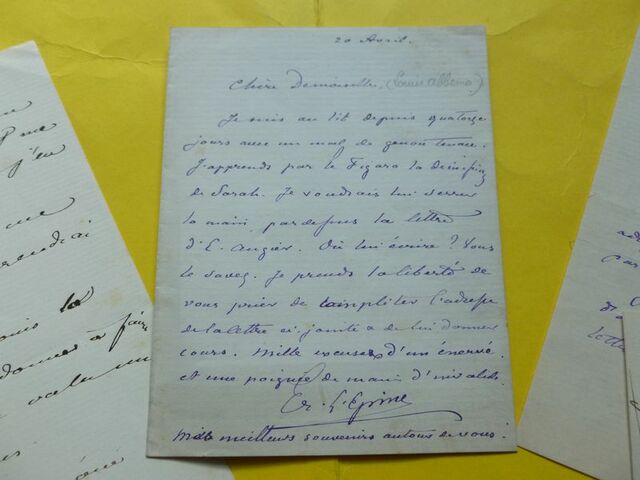 20 Avril.
Chère Demoiselle, (Louise Abbema)
Je suis au lit depuis quatorze
jours avec un mal de genou tenace.
J'apprends par le Figaro la
de Sarah. Je voudrais lui serrer
la main, par dessus la lettre
d'E. Augier. Où lui écrire? Vous
le savez. Je prends la liberté de
vous prier de l'adresse
de la lettre ci jointe & de lui donner
cours. Mille excuses d'un énervé
et une poignée de main d'invalide.
L'Epine
meilleurs souvenirs autour de vous.
me
j'eu
me
la
à faire